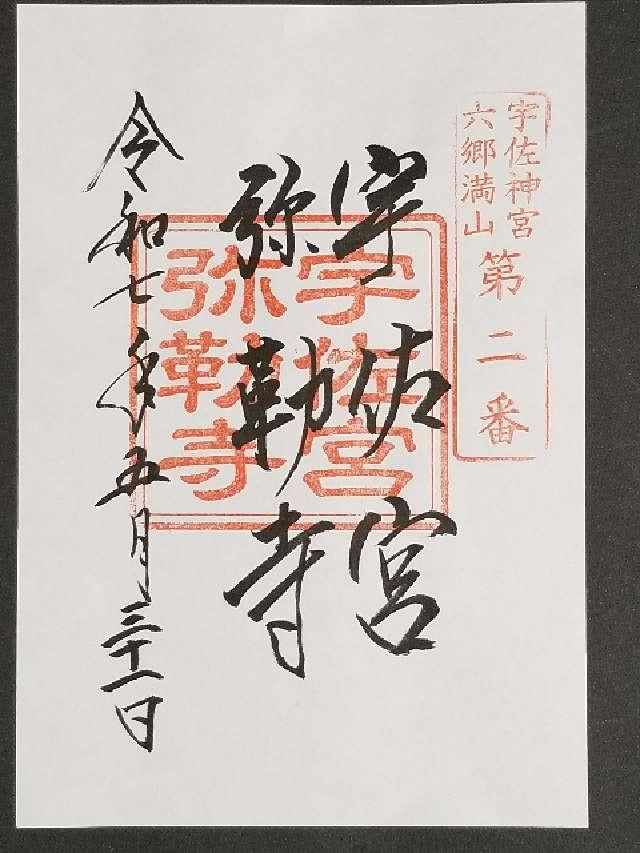 宇佐神宮
六郷満山
第二番
宇佐宮
弥勒寺
宇佐宮
弥勒寺
令和七年五月三十一日